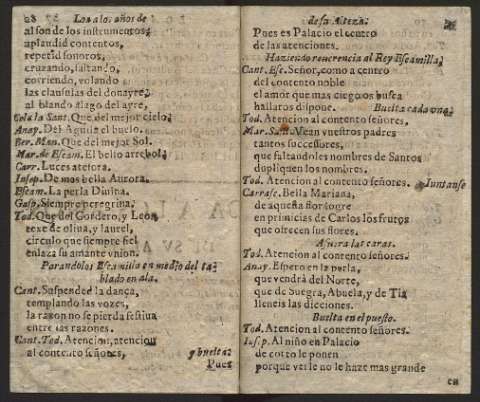 28 Los años de
al son de los instrumentos;
aplaudid contentos,
repetid sonoros,
cruzando, saltando,
corriendo, volando
las clausulas del donayre,
al blando álago del ayre,
Sola la Sant. Que del mejor cielo;
Anay. Del Aguila el buelo.
Ber. Man. Que del mejor Sol.
Mar. de Escam. El bello arrebol;
Carr. Luces atesora.
Insap. De mos bella Aurora.
Escam. La perla Divina.
Gasp. Siempre peregrina;
Tod. Que del Cordero, y Leon
texe de oliva, y laurel,
circulo que siempre fiel
enlaza su amante vnion.
Parandolos Escamilla en medio del ta-
blado en ala.
Cant. Suspended la dança,
templando las vozes,
la razon no se pierda festiua
entre las razones.
Cant. Tod. Atencion, atencion
al contento señores, y buelta:
Pues
de su Alteza.
Pues es Palacio el centro
de las atenciones.
Haziendo reuerencia al Rey Escamilla;
Cant. Esc. Señor, como a centro
del contento noble
el amor que mas ciego os busca
hallaros dispone. Buelta cada vna;
Tod. Atencion al contento señores.
Mar. Vean vuestros padres
tantos successores,
que faltandoles nombres de Santos
dupliquen los nombres.
Tod. Atencion al contento señores. Iuntanse
Carrasc. Bella Mariana,
de aquesta flor logre
en primicias de Carlos los frutos
que ofrecen sus flores.
Afuera las caras.
Tod. Atencion al contento señores.
Anay. Espero en la perla,
que vendrá del Norte,
que de Suegra, Abuela, y de Tia
lleneis las dicciones.
Buelta en el puesto.
Tod. Atencion al contento señores.
Ins. p. Al niño en Palacio
de corto le ponen
porque verle no le haze mas grande
en